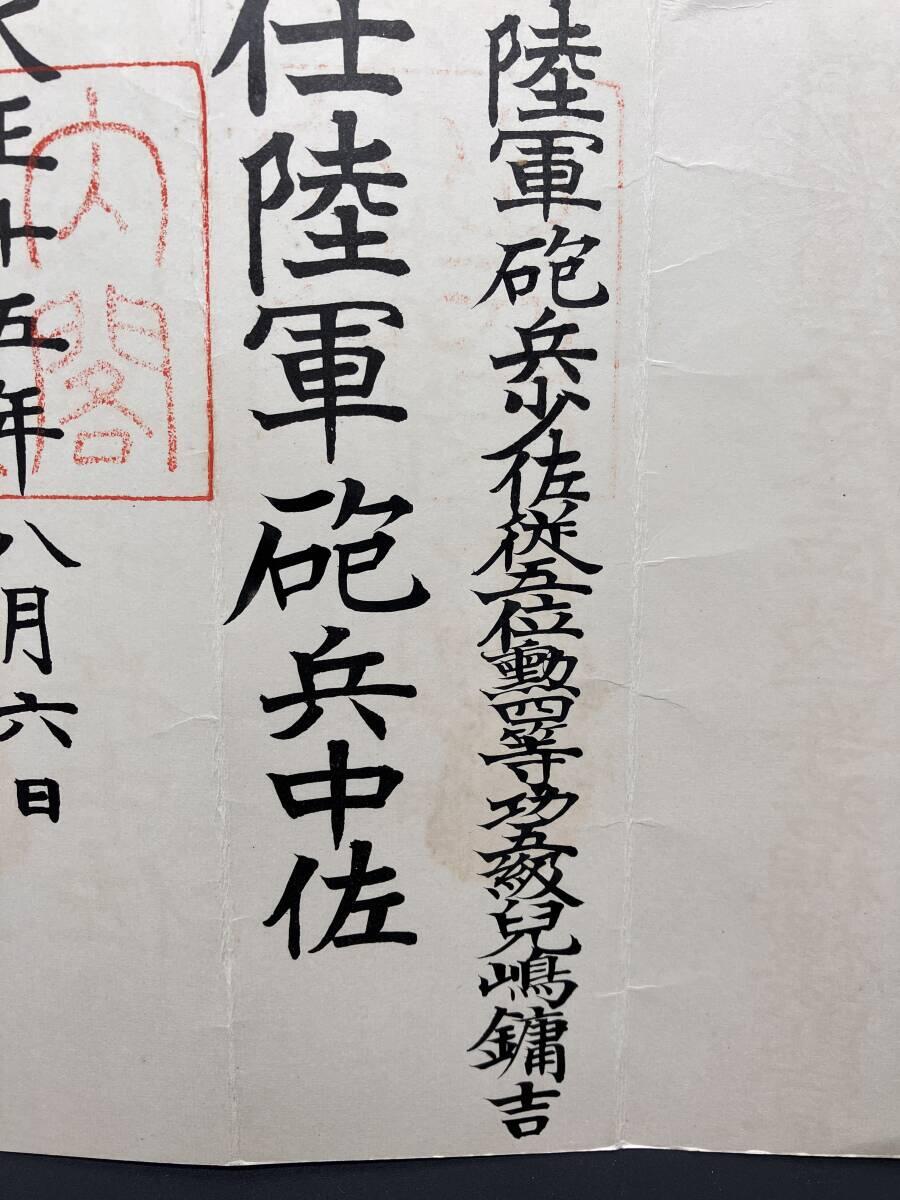 陸軍砲兵少佐従五位勲四等功五級兒嶋鏞吉
任陸軍砲兵中佐
大正十五年八月六日
内閣